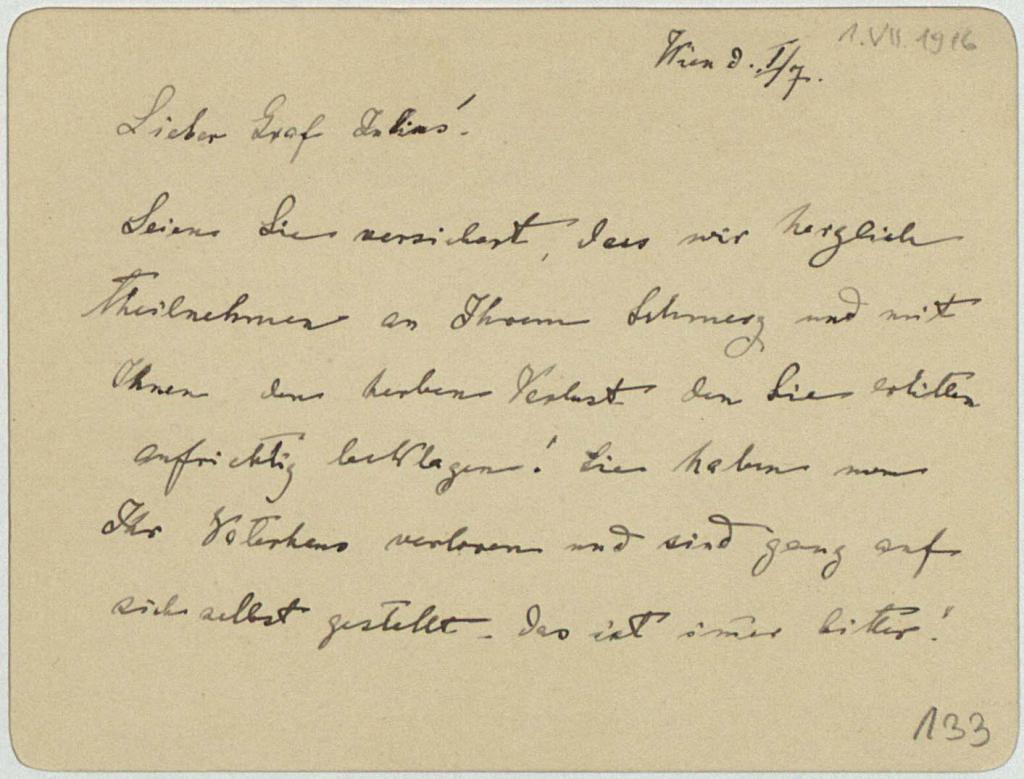 1.VII.1916
Wien d. I/7.
Lieber Graf Julius!
Seien Sie versichert, dass wir herzlich
theilnehmen an Ihrem Schmerz und mit
Ihnen den herben Verlust den Sie erlitten
aufrichtig beklagen! Sie haben nun
Ihr Vaterhaus verloren und sind ganz auf
sich selbst gestellt. Das ist im̄er bitter!
133